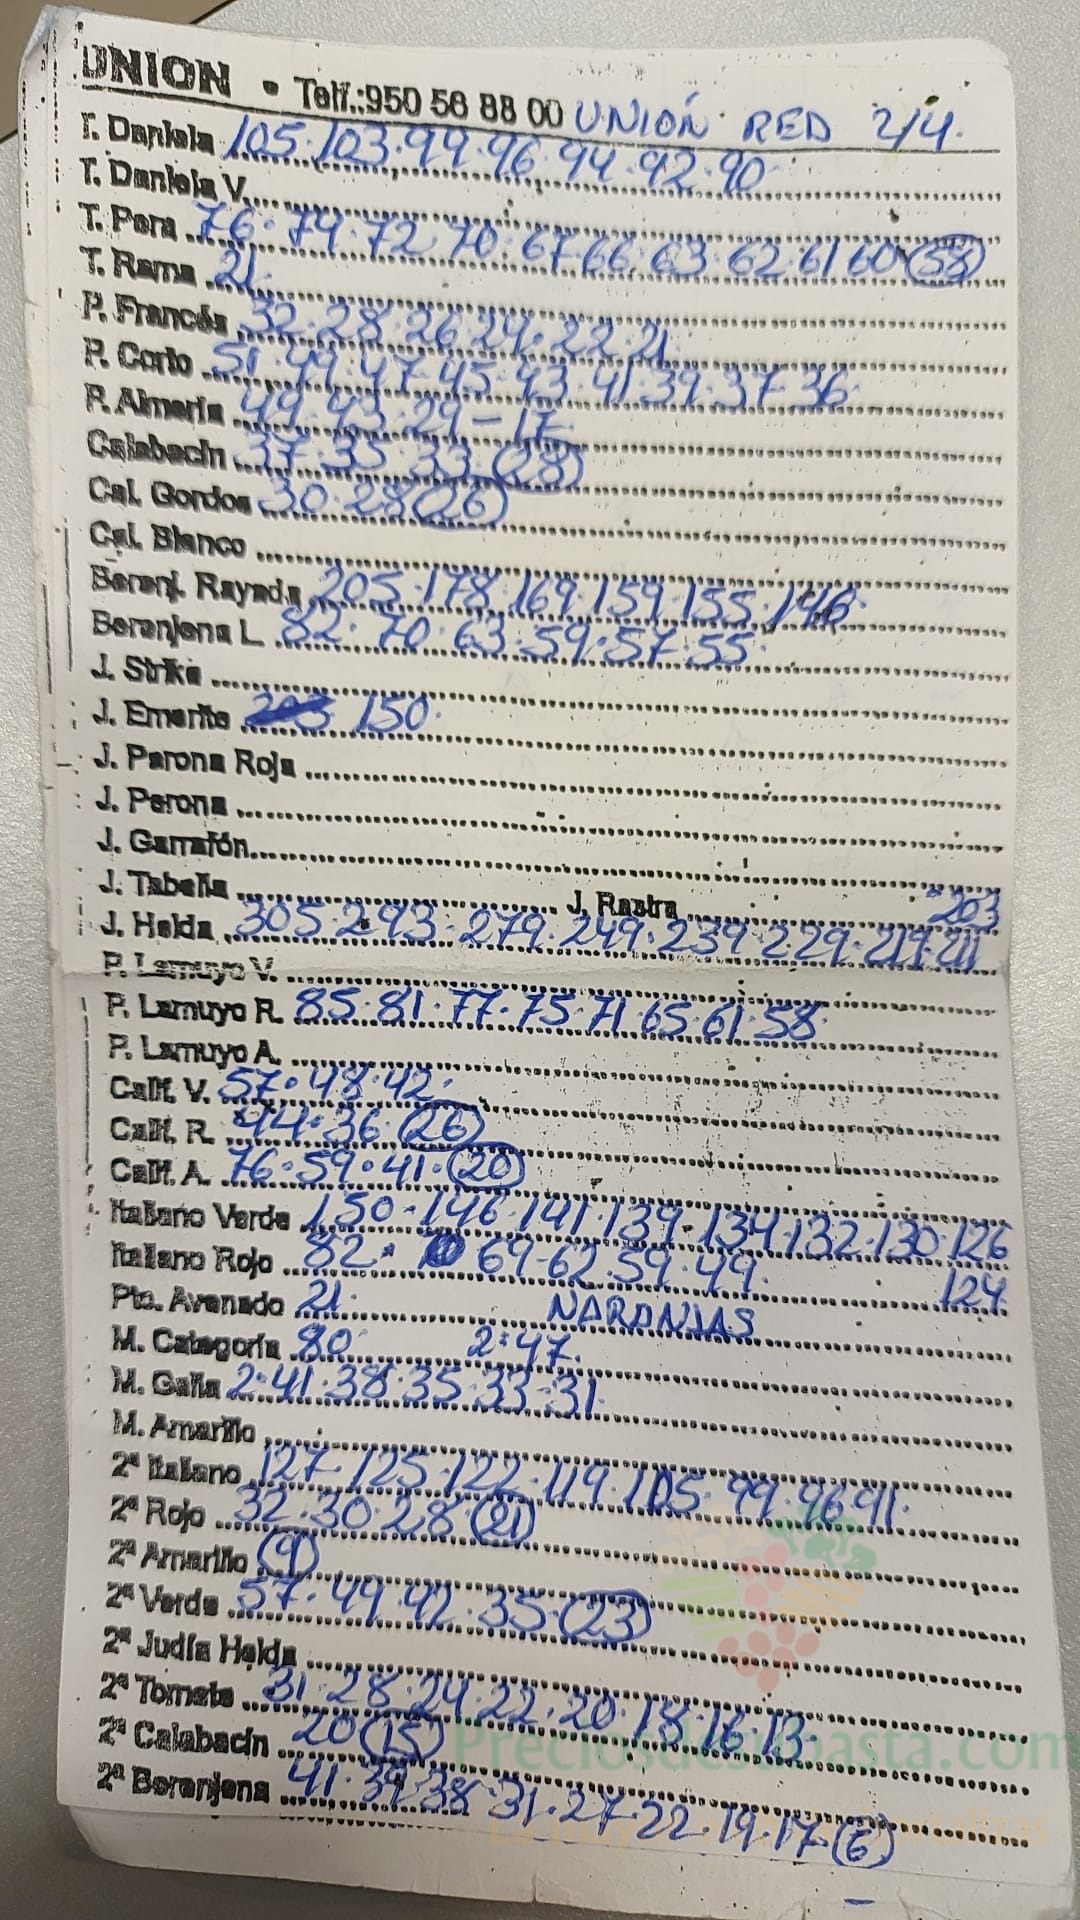 UNION • Telf.:950 56 88 00 UNIÓN RED 2/4.
T. Daniela 105·103·99·96·94·92·90
T. Daniela V.
T. Pera 76·74·72·70·67·66·63·62·61·60·(58)
T. Rama 21.
P. Francés 32·28·26·24·22·21
P. Corto 51·49·47·45·43·41·39·37·36
P. Almería 49·43·29-17
Calabacín 37·35·33·(28)
Cal. Gordos 30·28(26)
Cal. Blanco
Berenj. Rayada 205·178·169·159·155·146
Berenjena L. 82·70·63·59·57·55
J. Strike
J. Emerite 150·
J. Perona Roja
J. Perona
J. Garrafón
J. Tabella J. Rastra 203
J. Helda 305·293·279·249·239·229·219·211
P. Lamuyo V.
P. Lamuyo R. 85·81·77·75·71·65·61·58
P. Lamuyo A.
Calif. V. 57·48·42
Calif. R. 44·36·(26)
Calif. A. 76·59·41·(20)
Italiano Verde 150·146·141·139·134·132·130·126
124
Italiano Rojo 82· 69-62·59·49
Pto. Avenado 21· NARANJAS
M. Categoría 80 2·47
M. Galia 2·41·38·35·33·31
M. Amarillo
2ª Italiano 127·125·122·119·105·99·96·91
2ª Rojo 32·30·28·(21)
2ª Amarillo (9)
2ª Verde 57·49·42·35·(23)
2ª Judía Helda
2ª Tomate 31·28·24·22·20·18·16·13
2ª Calabacín 20(15)
2ª Berenjena 41·39·38·31·27·22·19·17·(6)
Preciosdesubasta.com